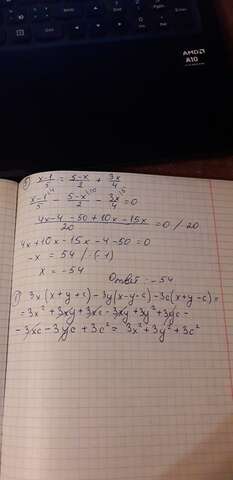 AMD
A10
2) x-1/5 = 5-x/2 + 3x/4
x-1/5 \4 - 5-x/2 \10 - 3x/4 \5 = 0
4x-4-50+10x-15x/20 = 0 / 20
4x+10x-15x-4-50=0
-x = 54 / (-1)
x = -54
Ответ: -54
1) 3x(x+y+c)-3y(x-y-c)-3c(x+y-c)=
=3x²+3xy+3xc-3xy+3y²+3yc-
-3xc-3yc+3c²= 3x²+3y²+3c²